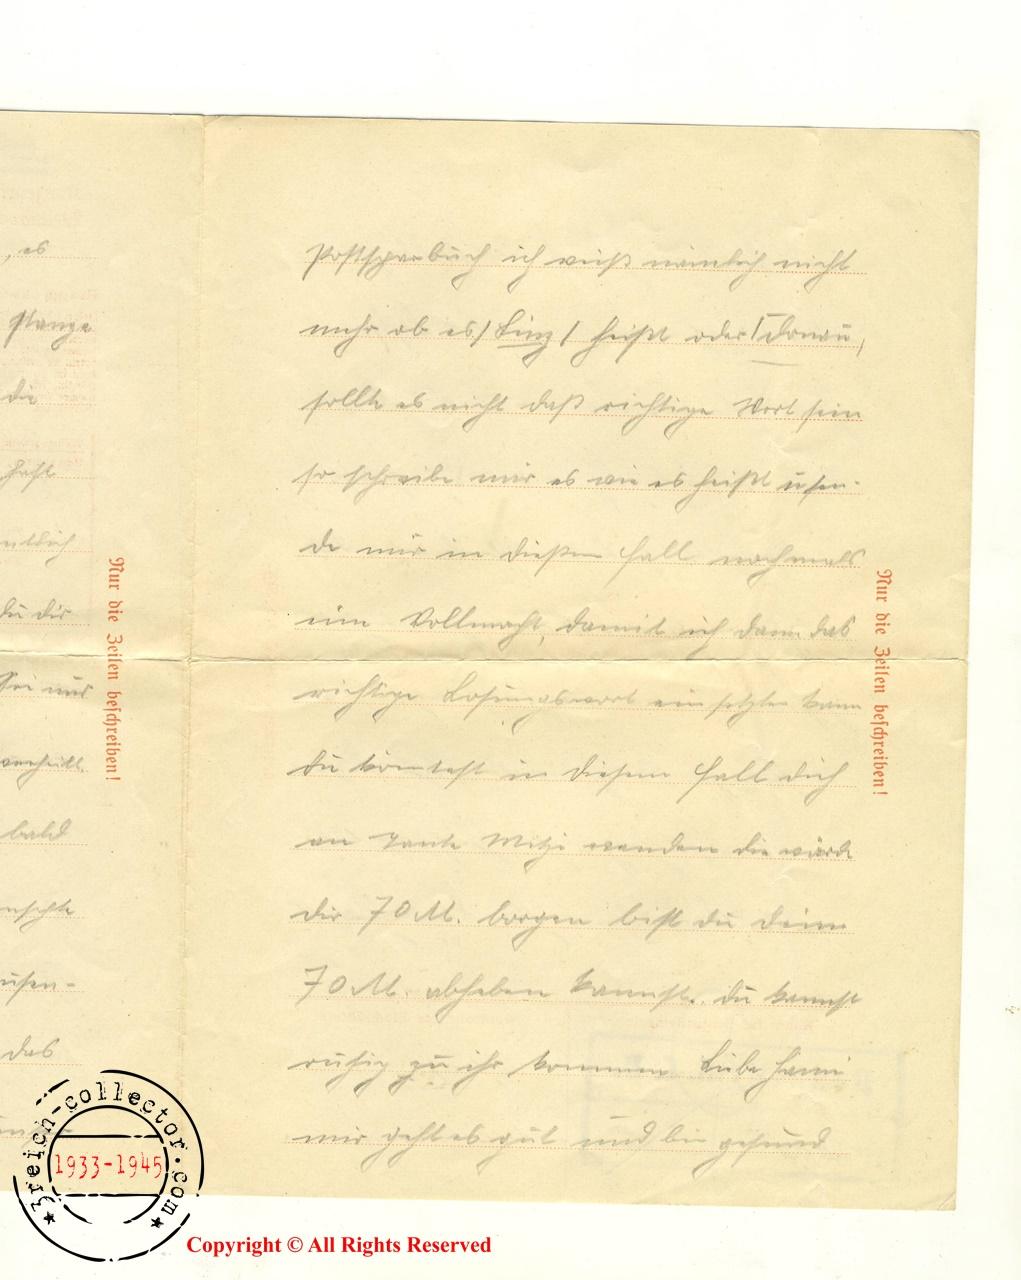 , es
Stange
die
haft
ntlich
du dir
Sei nur
bald
nschte
usen-
das
Nur die Zeilen beschreiben!
Postsparbuch ich weiß nämlich nicht
mehr ob es / Linz / heißt oder / Donau,
sollte es nicht daß richtige Wort sein
so schreibe mir es wie es heißt u sen-
de mir in dießen Fall nochmals
eine Vollmacht, damit ich dann das
richtige Losungswort ein setzten kann
du köntest in diesem Fall dich
an Tante Mitzi wenden die würde
dir 70 M. borgen bist du deine
70 M. abheben kannst. du kannst
ruhig zu ihr kommen Liebe Hanni
mir geht es gut und bin gesund
Nur die Zeilen beschreiben!
3reich-collector.com
1933-1945
Copyright © All Rights Reserved